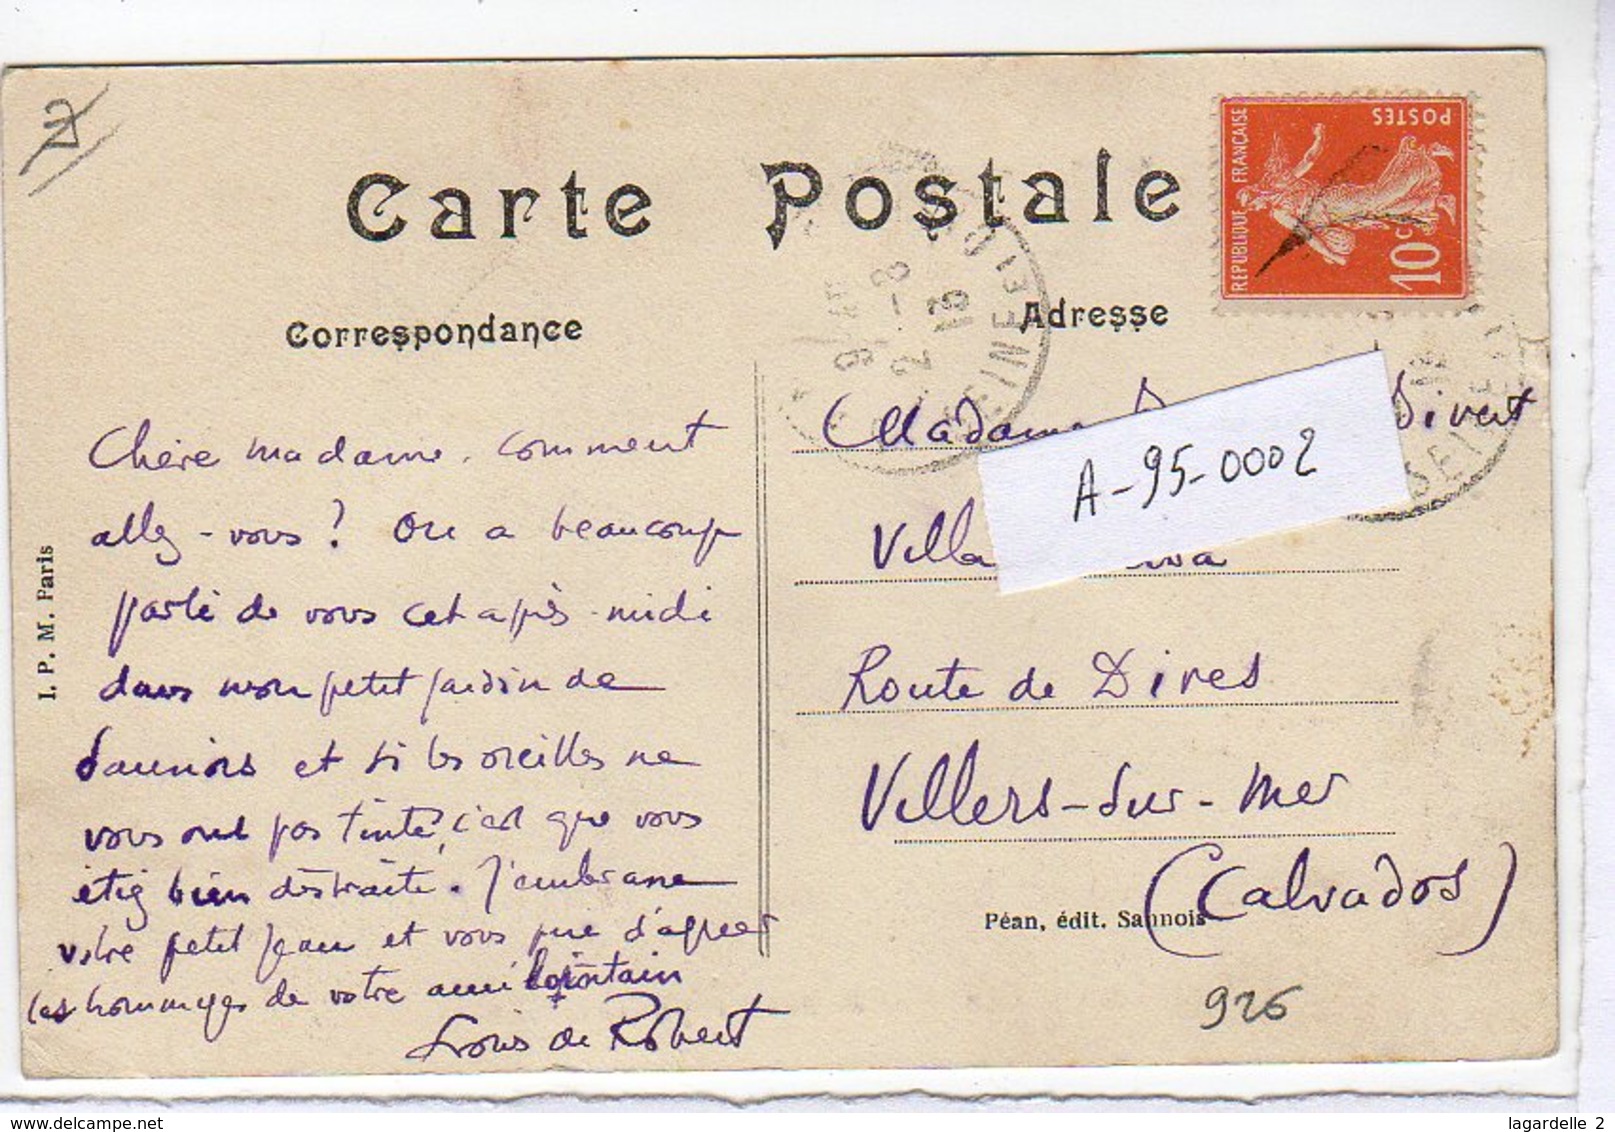 Carte Postale
Correspondance
Adresse
REPUBLIQUE FRANÇAISE
POSTES
10 c
2 - 8
13
Chère madame, comment
allez-vous ? On a beaucoup
parlé de vous cet après-midi
dans mon petit jardin de
Sannois et si les oreilles ne
vous ont pas tinté, c'est que vous
étiez bien distraite. J'embrasse
votre petit Jean et vous prie d'agréer
les hommages de votre ami lointain
Louis de Robert
I. P. M. Paris
Madame Divert
A-95-0002
Villa
Route de Dives
Villers-sur-mer
(Calvados)
Péan, édit. Sannois
926
lagardelle 2